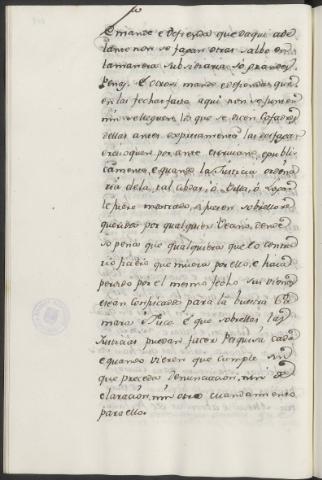 E mando e defiendo que daqui ade
lante non se fagan otras salbo en
la manera susodicha so grandes
Penas. E otrosi mando e defiendo que
en las fechas fasta aqui non se junten
nin se lleguen los que se dicen Cofadres
dellas antes expresamente las desfagan
e revoquen por ante escrivano e publi
camente, e quando la Justicia ordena
ria de la tal cibdad, o Villa, o Logar
le fuere mandado, o fueren sobrello re
queridos por qualquier Vecino, dende
so pena que qualquiera que lo contra
rio ficiere que muera por ello, e haia
perdido por el mesmo fecho sus vienes
e sean confiscados para la nuestra Ca
mara e Fisco. E que sobre esto las
Justicias puedan facer Pesquisa cada
e quando vieren que cumple sin
que preceda Denunciacion, nin de
claracion, nin otro mandamiento
para ello.